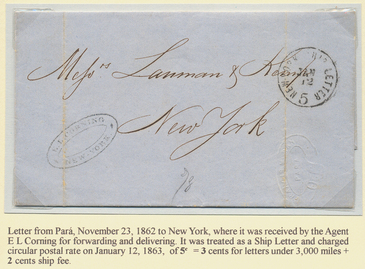 Mess.rs Lanman & Kemp
New York
NEW YORK SHIP LETTER
JAN
12
5
E.L.CORNING
NEW-YORK.
Letter from Pará, November 23, 1862 to New York, where it was received by the Agent
E L Corning for forwarding and delivering. It was treated as a Ship Letter and charged
circular postal rate on January 12, 1863, of 5c = 3 cents for letters under 3,000 miles +
2 cents ship fee.